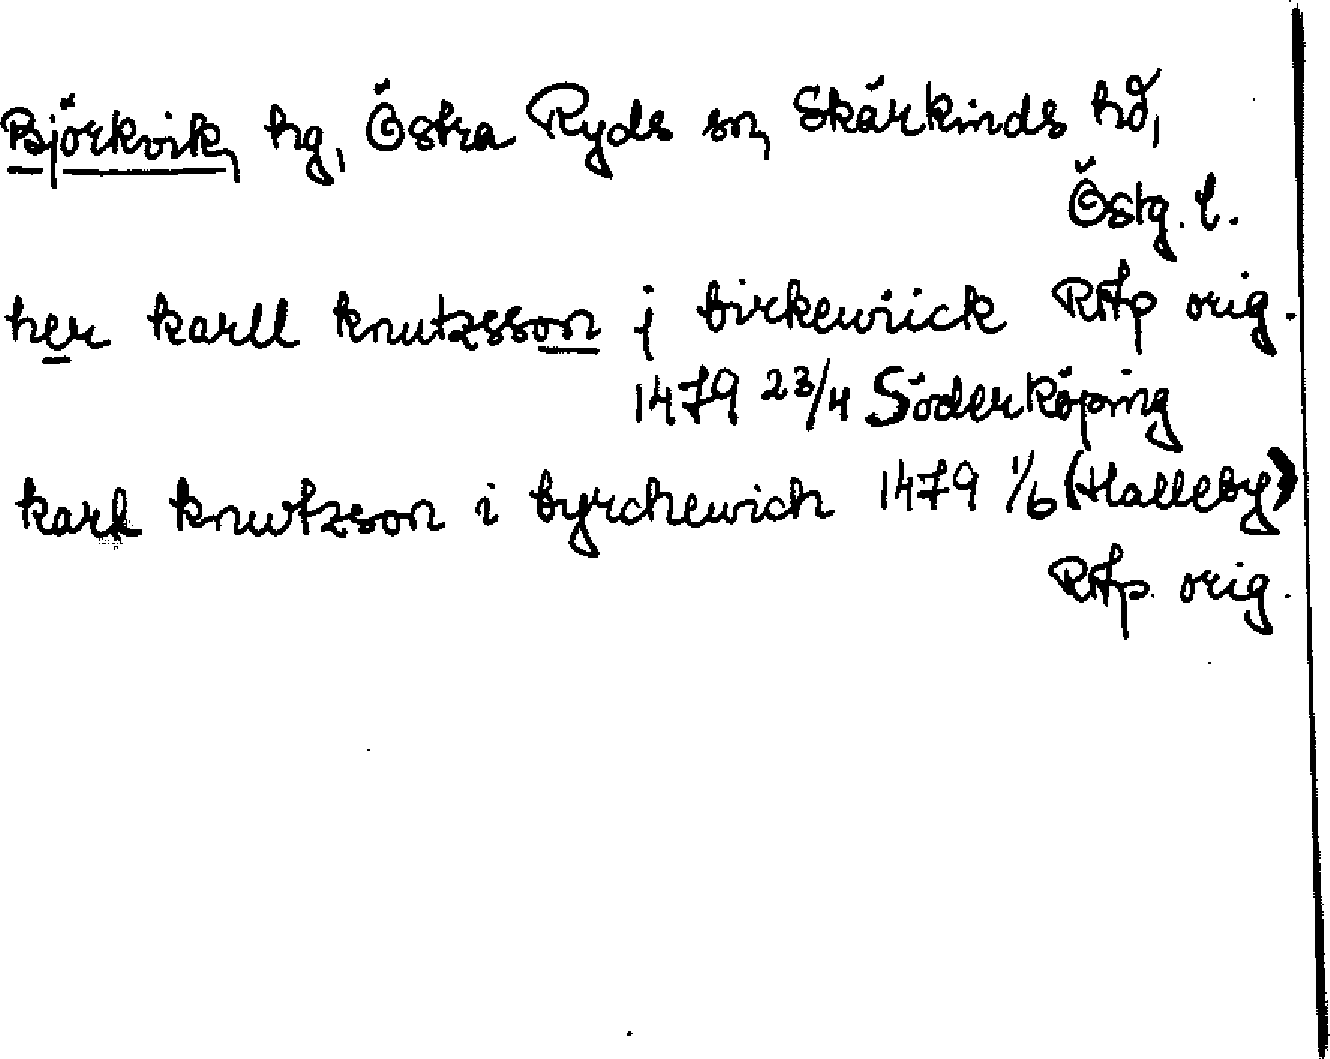 Björkvik, hg, Östra Ryds sn, Skärkinds hd,
Östg. l.
her karll knutzsson j birkewiick RAp orig.
1479 23/4 Söderköping
karl knwtzson i byrchewich 1479 1/6 (Halleby)
RAp. orig.